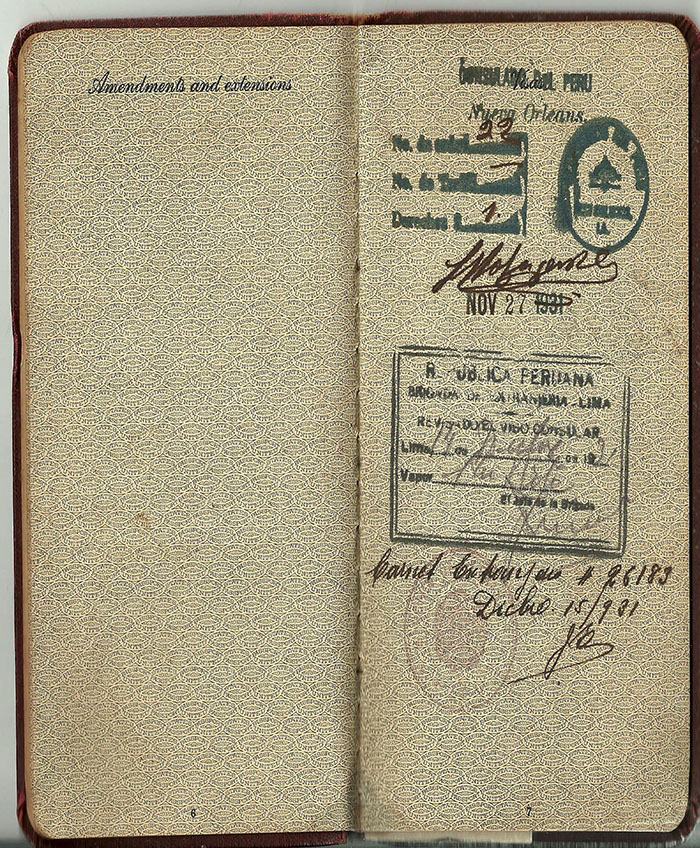 Amendments and extensions
6
CONSULADO DEL PERU
Visas
Nueva Orleans.
No. de orden 22
No. de
Derechos $ 1
NOV 27 1931
REPUBLICA PERUANA
BRIGADA DE EXTRANJERIA - LIMA
REVISADO EL VISO CONSULAR
Lima, 14 de de 19
Vapor
El Jefe de la Brigada
Carnet Extranjero # 26183
Dicbre 15/931
7